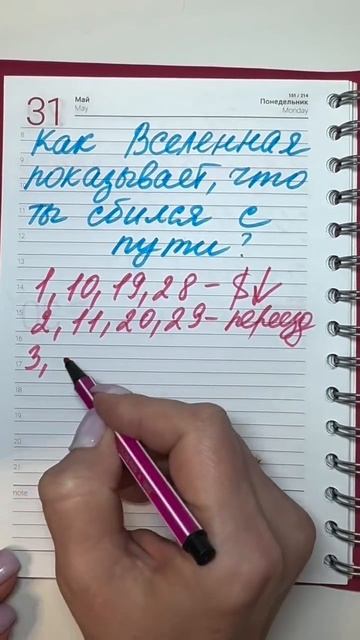 31
Май
May
151 / 214
Понедельник
Monday
8
Как Вселенная
показывает, что
ты сбился с
пути?
1, 10, 19, 28 – $↓
2, 11, 20, 29 – переезд
3,
9
10
11
12
13
14
15
16
17
18
19
20
21
note